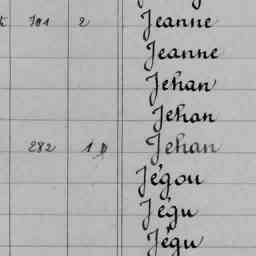 701 2 Jeanne
Jeanne
Jehan
Jehan
282 1 Jehan
Jégou
Jégu
Jégu